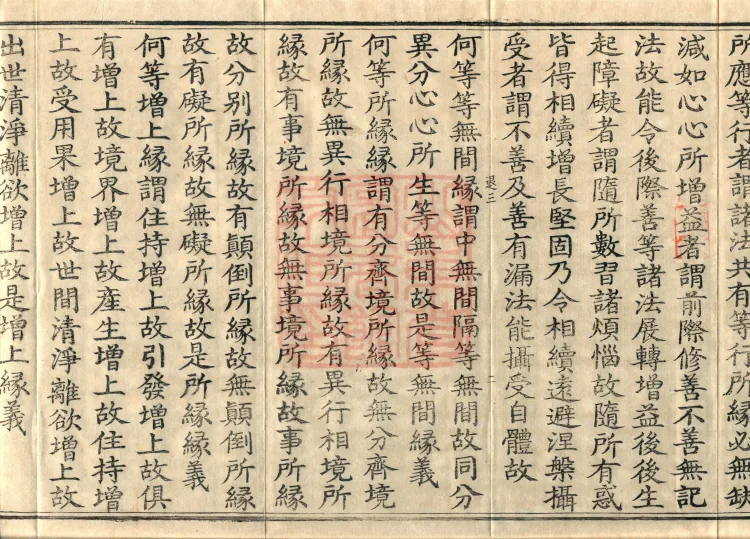 所應等行者謂諸法共有等行所縁必無缺
減如心心所增益者謂前際修善不善無記
法故能令後際善等諸法展轉增益後後生
起障礙者謂隨所數習諸煩惱故隨所有惑
皆得相續增長堅固乃令相續遠避涅槃攝
受者謂不善及善有漏法能攝受自體故
何等等無間縁謂中無間隔等無間故同分
異分心心所生等無間故是等無間縁義
何等所縁縁謂有分齊境所縁故無分齊境
所縁故無異行相境所縁故有異行相境所
縁故有事境所縁故無事境所縁故事所縁
故分別所縁故有顛倒所縁故無顛倒所縁
故有礙所縁故無礙所縁故是所縁縁義
何等增上縁謂住持增上故引發增上故俱
有增上故境界增上故産生增上故住持增
上故受用果增上故世間清淨離欲增上故
出世清淨離欲增上故是增上縁義